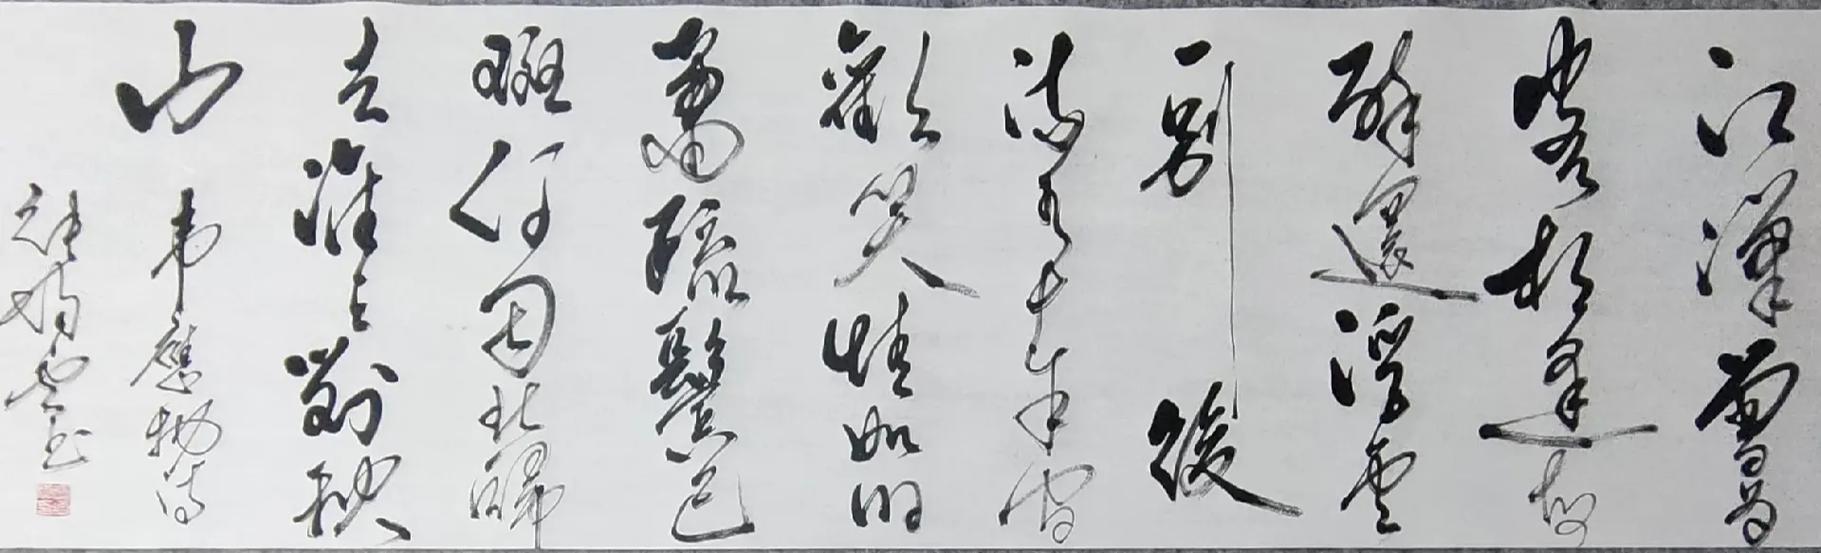 江漢曾為
客相逢每
醉還浮雲
一別後
流水十年間
歡笑情如旧
蕭疏鬢已
斑何因北歸
去淮上對秋
山 韋應物詩